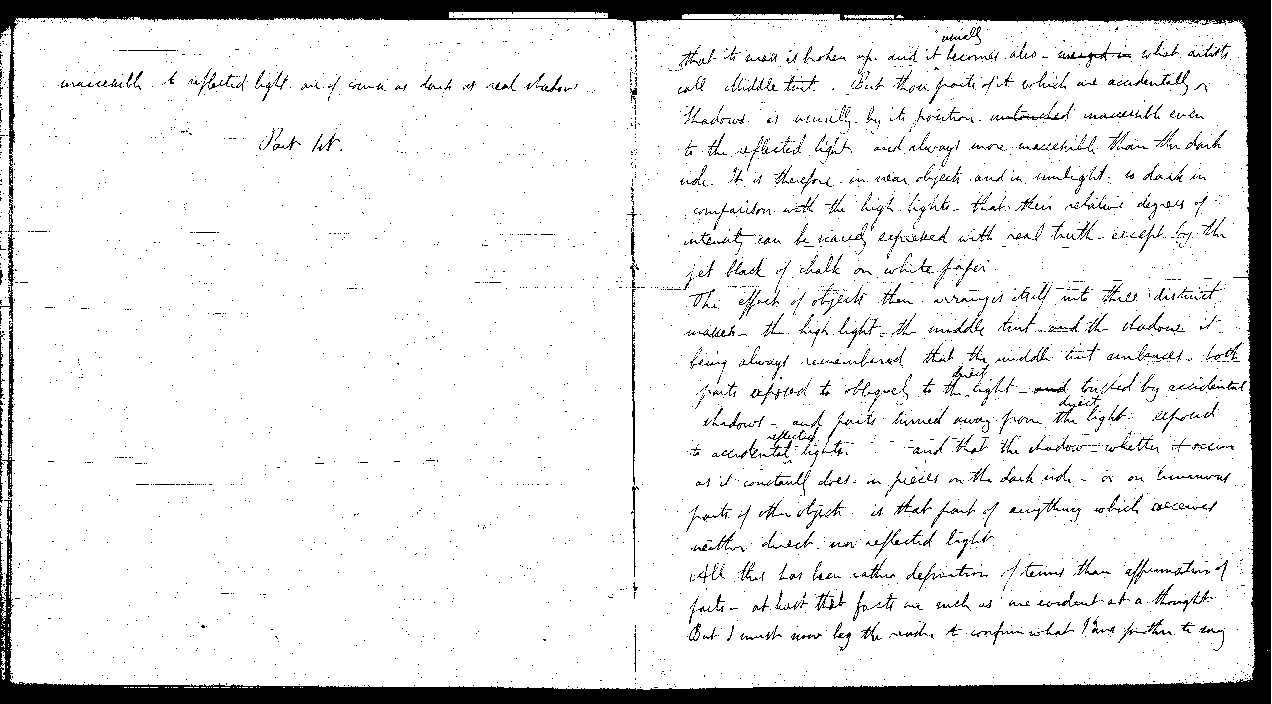 inaccessible to reflected light are of course as dark as real shadow
Part 1st.
usually
that its mass is broken up. and it becomes also - merged in what artists
call Middle tint. But those parts of it which are accidentally in
Shadows. is usually by its position untouched inaccessible even
to the reflected light and always more inaccessible than the dark
side. It is therefore in near objects and in sunlight. so dark in
comparison with the high lights - that their relative degrees of
intensity can be scarcely expressed with real truth - except by the
jet black of chalk on white paper
The effect of objects then arranges itself into three distinct
masses - the high light - the middle tint - and the shadow it
being always remembered that the middle tint embraces - both
direct
parts exposed to obliquely to the light - and touched by accidental
direct
shadows - and parts turned away from the light exposed
reflected
to accidental lights. and that the shadow - whether it occur
as it constantly does - in pieces on the dark side - or on luminous
parts of other objects. is that part of anything which receives
neither direct. nor reflected light
All this has been rather definition of terms than affirmation of
facts - at least that facts are such as are evident at a thought
But I must now beg the reader to confirm what I have further to say